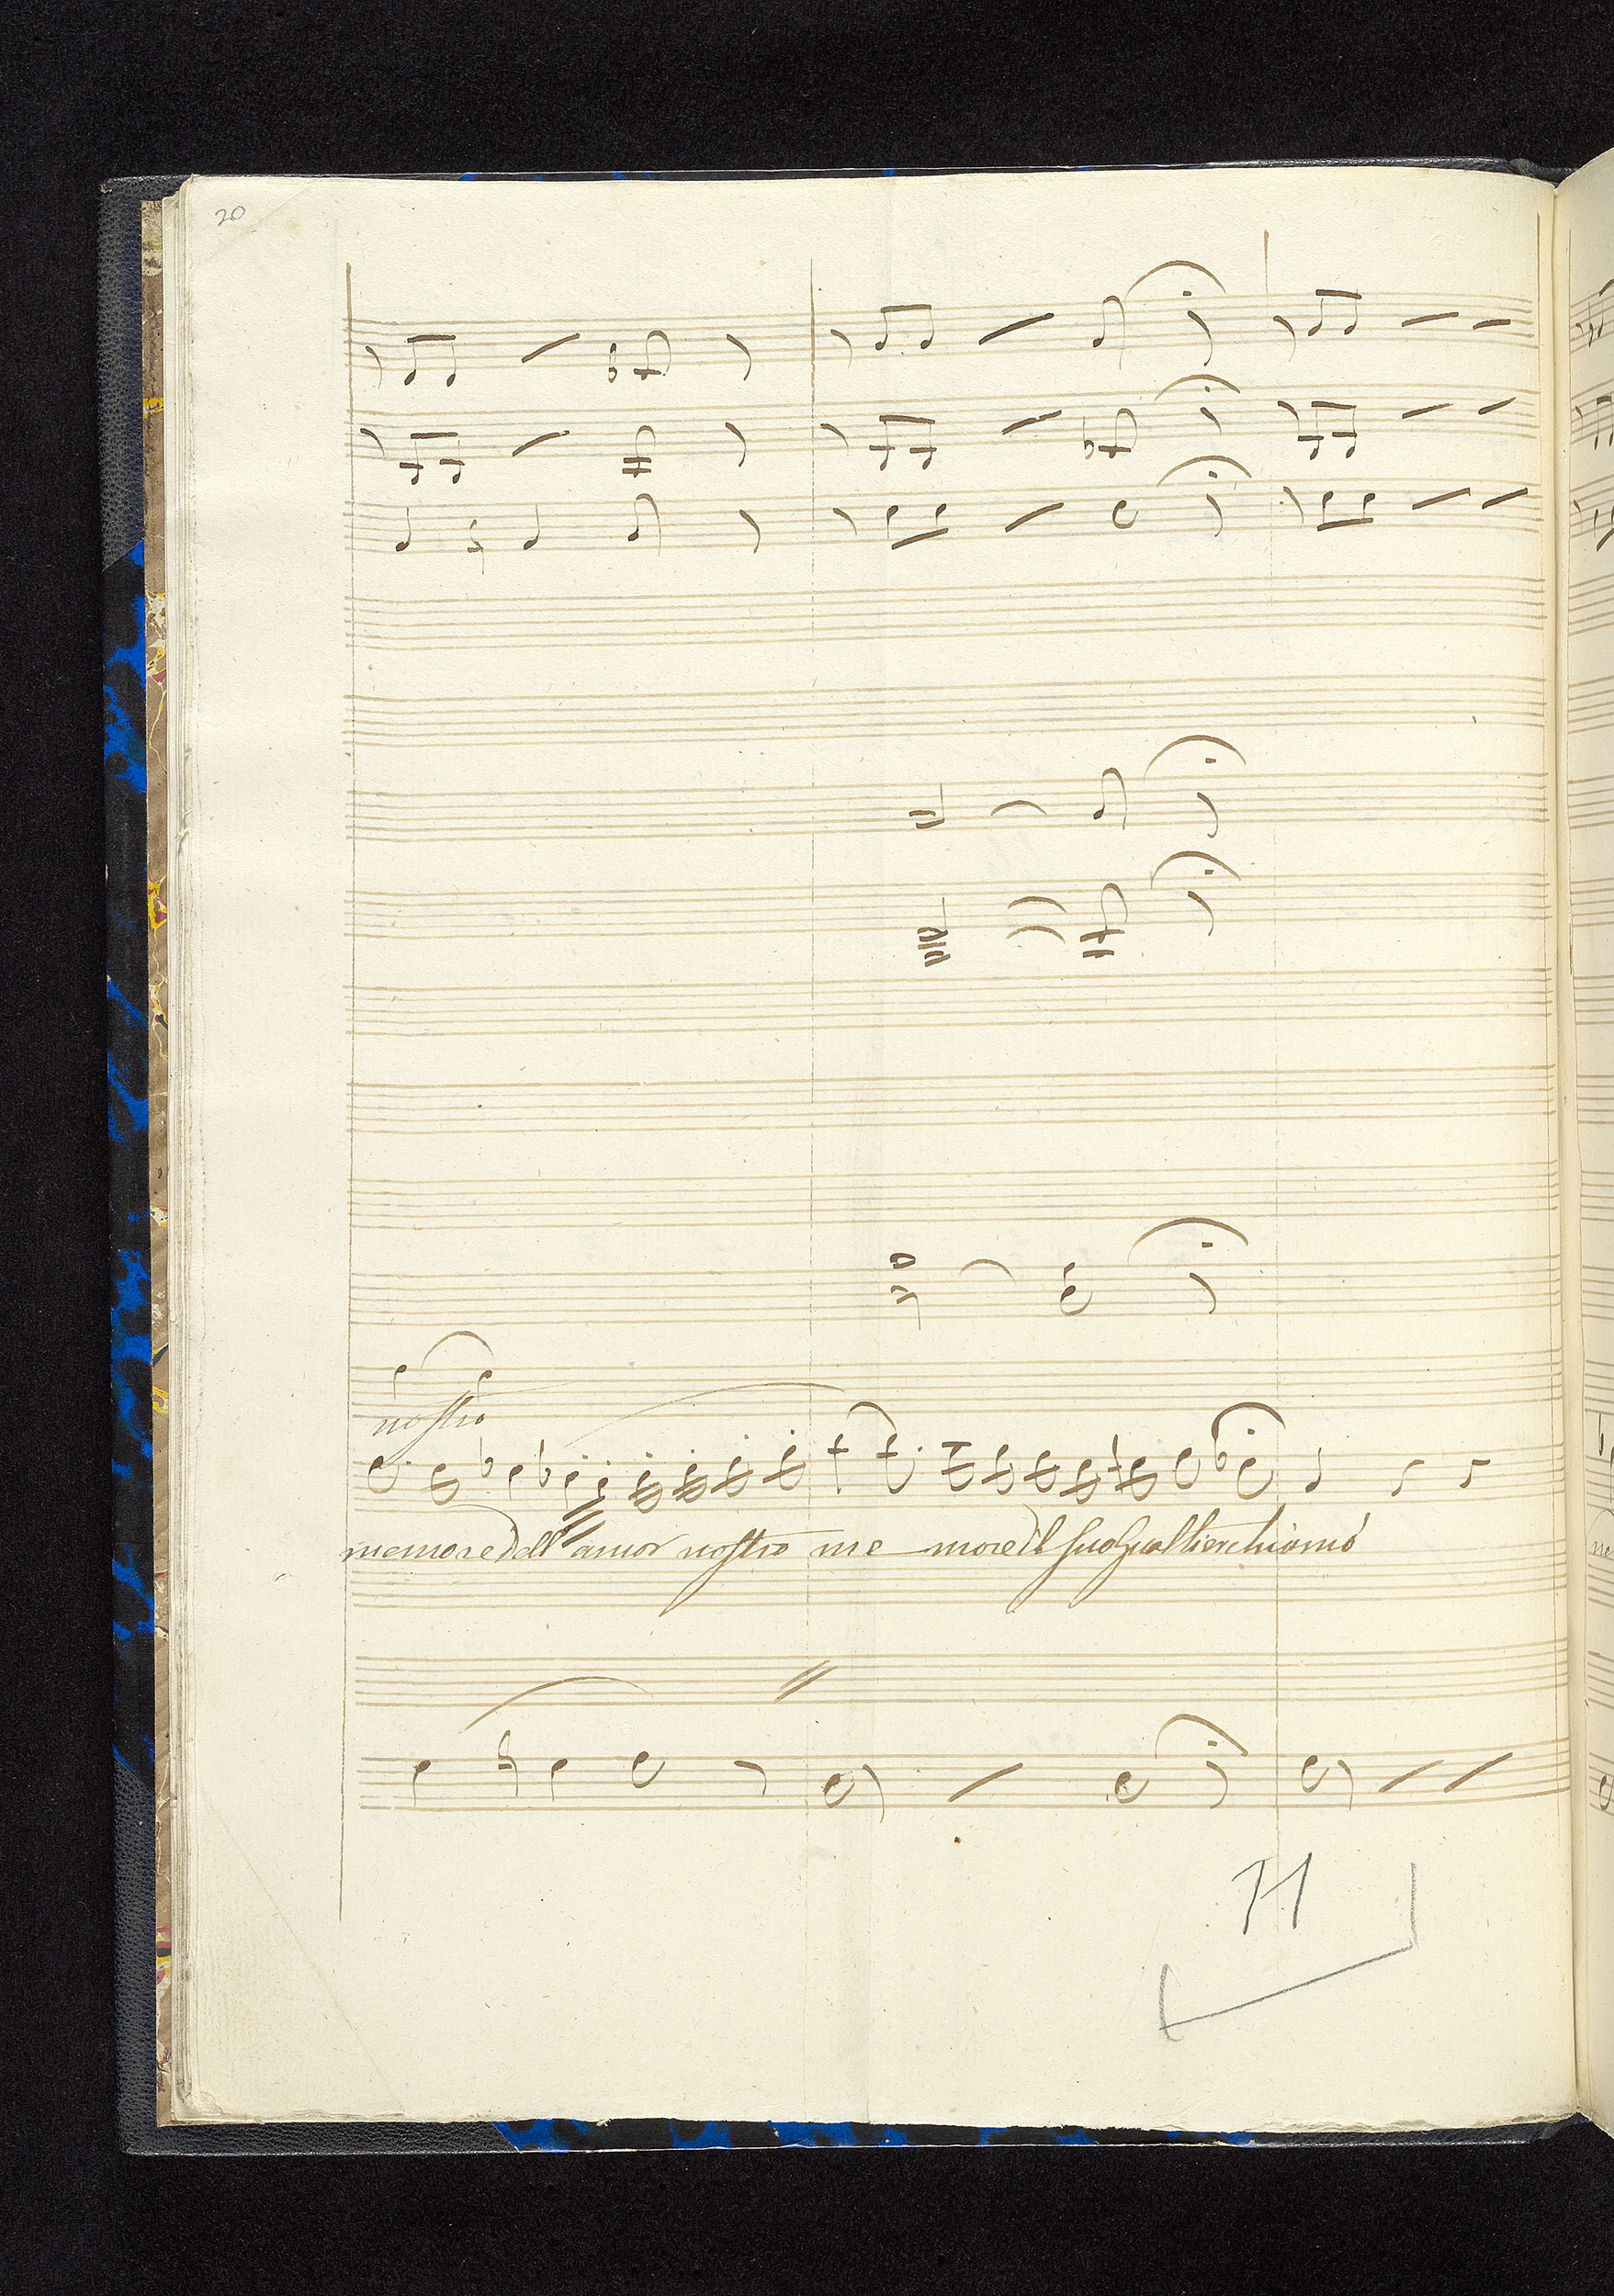 20
nostro
memore dell'amor nostro me more il suo Gualtier chiamò
H